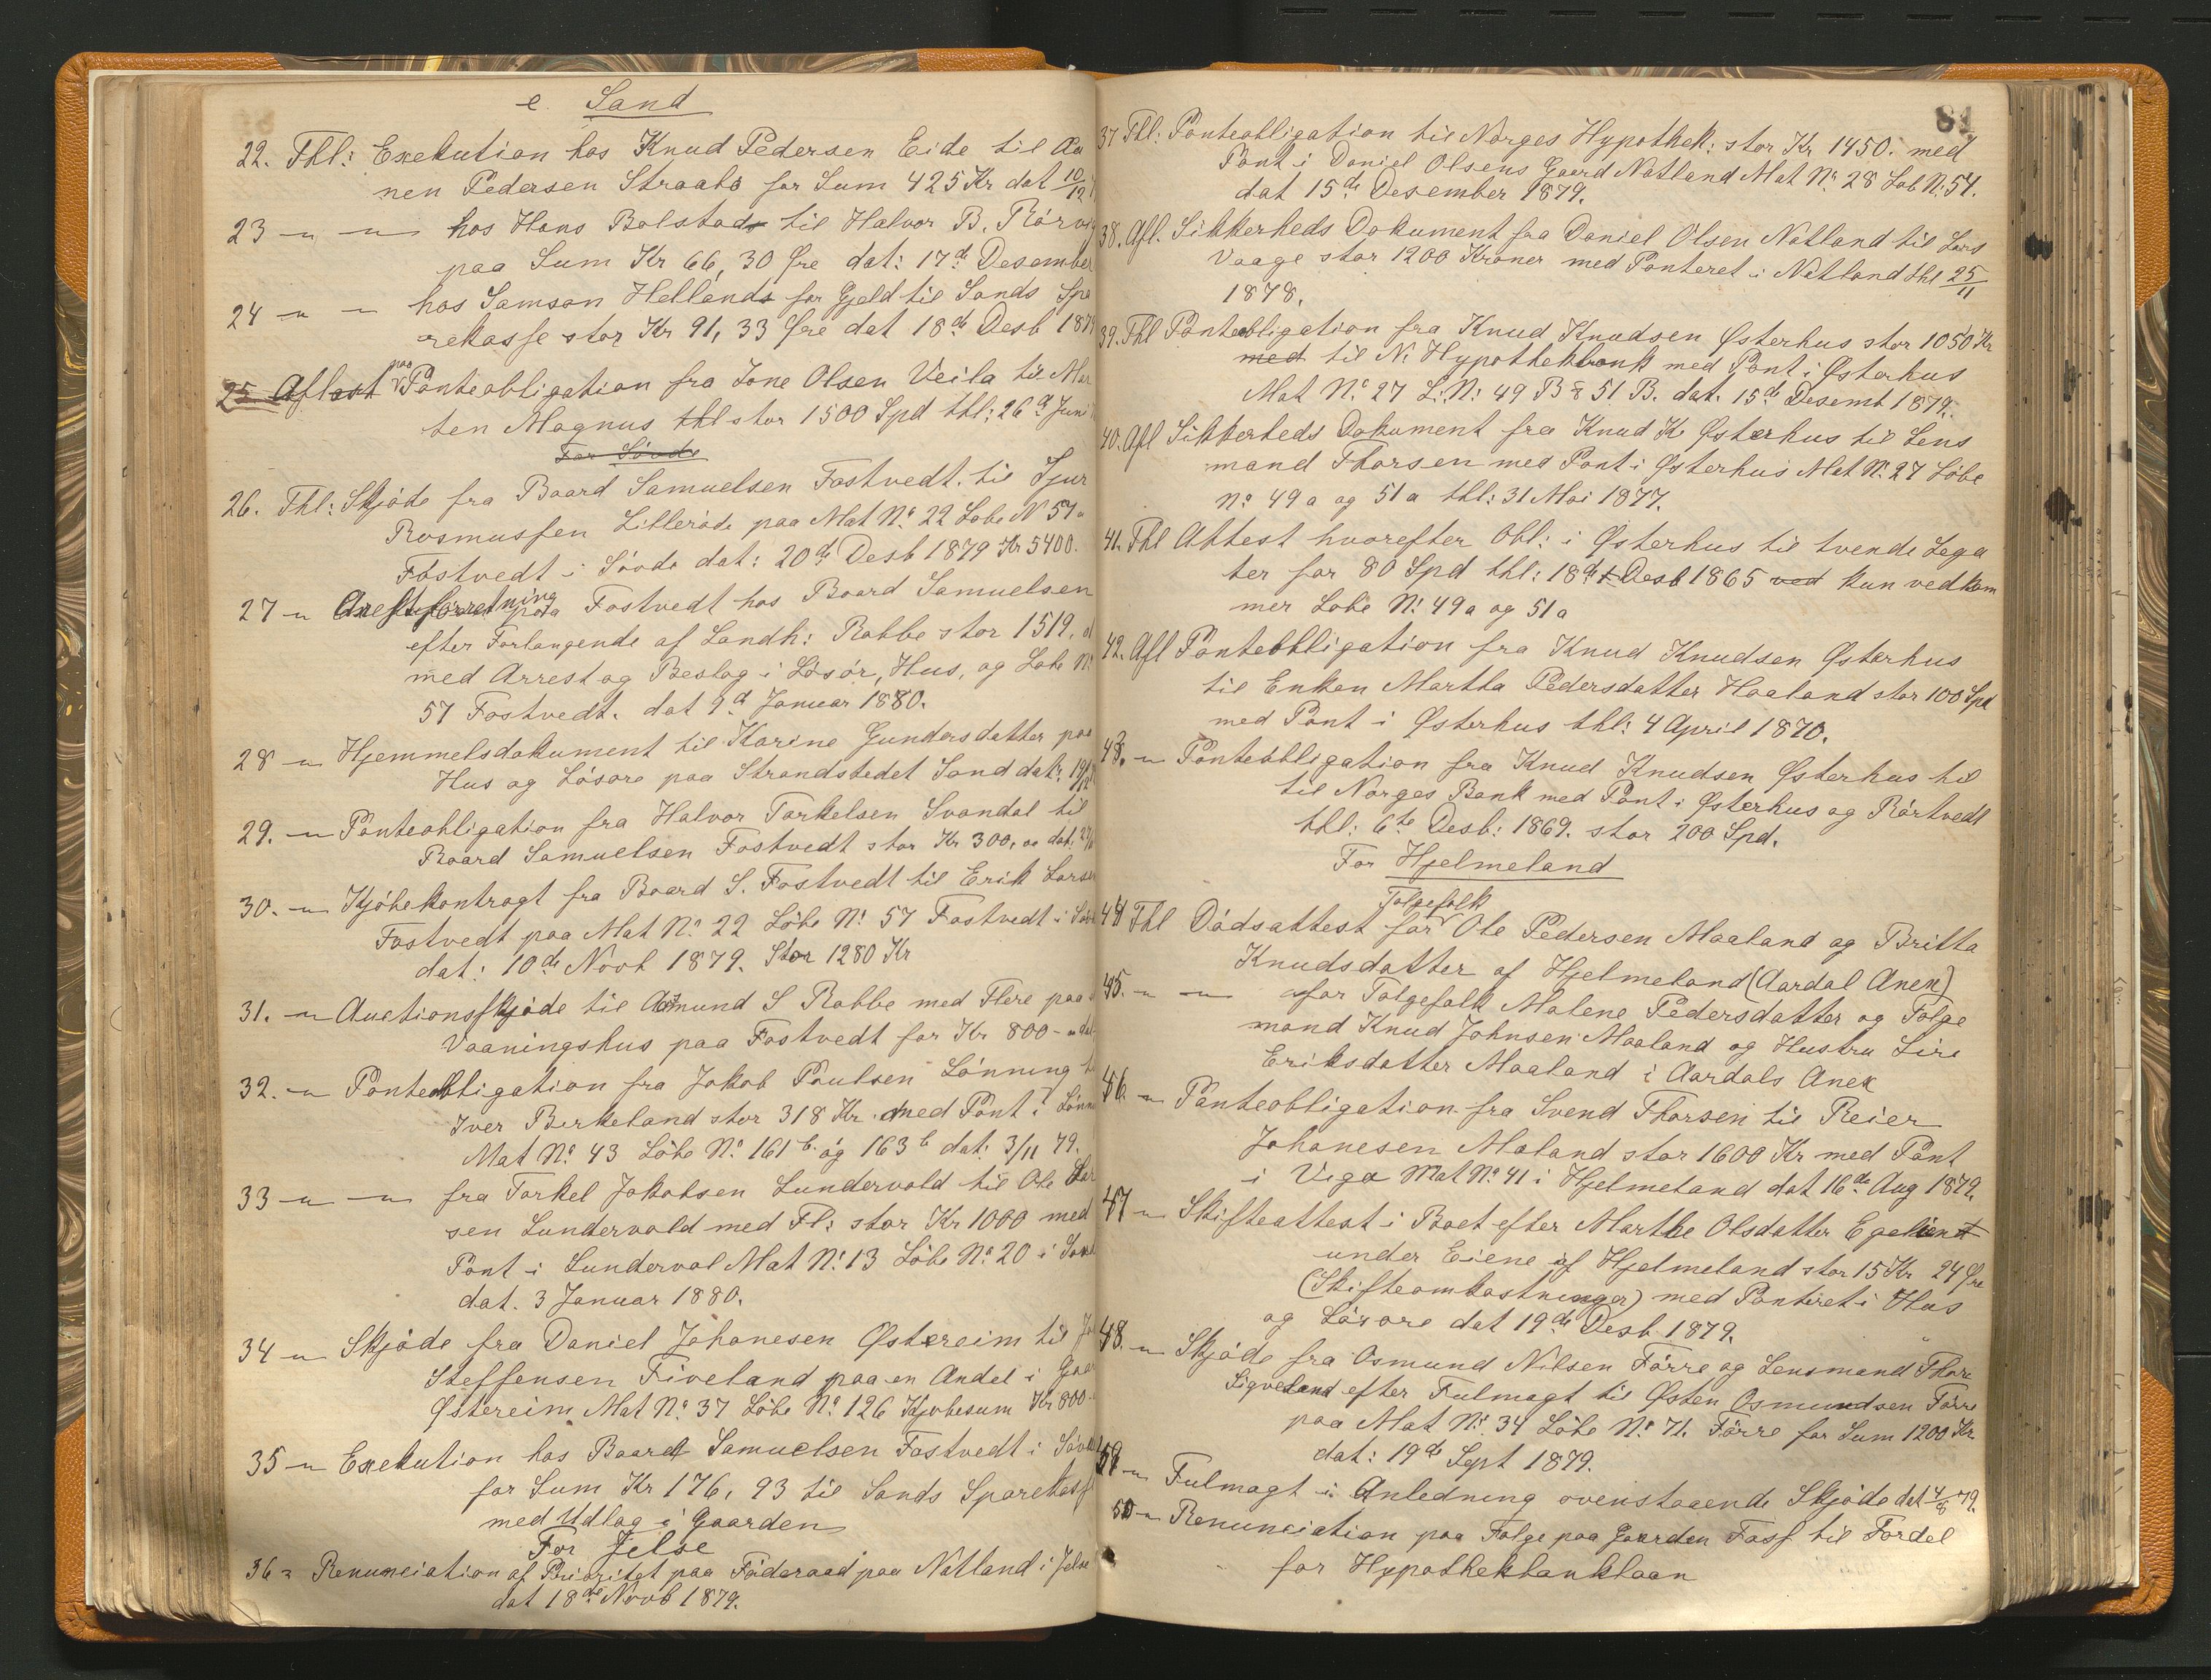 e. Sand
22. Thl: Exekution hos Knud Pedersen Eide til
nen Pedersen Straabø for Sum 425 Kr dat 10/12
23 " " hos Hans Bolstads til Halvor B. Rørvig
paa Sum Kr 66, 30 Øre dat: 17de Desember
24 " " hos Samson Hellands for Gjeld til Sands Spa
rekasse stor Kr 91, 33 Øre dat 18de Desb 1879
25 Aflæst paa Panteobligation fra Jone Olsen Veila til Mor
ten Magnus thl stor 1500 Spd thl: 26de Juni
For Søvde
26. Thl: Skjøde fra Baard Samuelsen Fostvedt til Sjur
Rosmussen Lillerøde paa Mat No 22 Løbe N 57a
Fostvedt i Søvde dat: 20de Desb 1879 Kr 5400.
27 " Arestforretning paa Fostvedt hos Baard Samuelsen
efter Forlangende af Landh: Rabbe stor 1519.
med Arrest og Beslag i Løsør, Hus, og Løbe No
57 Fostvedt. dat 9de Januar 1880.
28 " Hjemmelsdokument til Karine Gundersdatter paa
Hus og Løsøre paa Strandstedet Sand dat:
29. " Panteobligation fra Halvor Torkelsen Svandal til
Baard Samuelsen Fostvedt stor Kr 300, " dat:
30. " Kjøbekontragt fra Baard S. Fostvedt til Erik Larsen
Fostvedt paa Mat No 22 Løbe No 57 Fostvedt i
dat: 10de Novb 1879. Stor 1280 Kr
31. " Auctionsskjøde til Asmund S Rabbe med Flere paa
Vaaningshus paa Fostvedt for Kr 800 - "
32. " Panteobligation fra Jakob Poulsen Lønning
Iver Birkeland stor 318 Kr med Pant i
Mat No 43 Løbe No 161 b. og 163 b dat: 3/11 79.
33 " " fra Torkel Jakobsen Lundervold til Ole Lar
sen Lundervold med Fl: stor Kr 1000 med
Pant i Lundervol Mat No 13 Løbe No 20 i
dat. 3 Januar 1880.
34 " Skjøde fra Daniel Johanesen Østereim til
Steffensen Fiveland paa en Andel i
Østereim Mat No 37 Løbe No 126 Kjøbesum Kr 800
35 " Exekution hos Baard Samuelsen Fostvedt i
for Sum Kr 176, 93 til Sands Sparekasse
med Udlag i Gaarden
For Jelse
36 " Renunciation af Prioritet paa Føderaad paa Natland i Jelse
dat 18de Novb 1879.
81
37 Thl: Panteobligation til Norges Hypothek: stor Kr 1450. med
Pant i Daniel Olsens Gaard Natland Mat No 28 Løb No 54.
dat 15de Desember 1879.
38. Afl. Sikkerheds Dokument fra Daniel Olsen Natland til Lars
Vaage stor 1200 Kroner med Panteret i Natland thl 25/11
1878.
39. Thl Panteobligation fra Knud Knudsen Østerhus stor 1050 Kr
med til N. Hypothekbank med Pant i Østerhus
Mat No 27 L. N: 49 B & 51 B. dat. 15de Desemb 1879.
40. Afl Sikkerheds Dokument fra Knud K Østerhus til Lens
mand Thorsen med Pant i Østerhus Mat No 27 Løbe
No 49 a og 51 a thl: 31 Mai 1877.
41. Thl Attest hvorefter Obl: i Østerhus til tvende Lega
ter for 80 Spd thl: 18de Desb 1865 ved kun vedkom
mer Løbe No 49 a og 51 a
42. Afl Panteobligation fra Knud Knudsen Østerhus
til Enken Martha Pedersdatter Haaland stor 100 Spd
med Pant i Østerhus thl: 4 April 1870.
43. " Panteobligation fra Knud Knudsen Østerhus til
til Norges Bank med Pant i Østerhus og Rørtvedt
thl: 6te Desb: 1869. stor 200 Spd.
For Hjelmeland
Folgefolk
44 Thl Dødsattest for Ole Pedersen Maaland og Britta
Knudsdatter af Hjelmeland (Aardal Anex)
45. " " for Folgefolk Malene Pedersdatter og Folge
mand Knud Johnsen Maaland og Hustru Sire
Eriksdatter Maaland i Aardals Anex
46 " Panteobligation fra Svend Thorsen til Reier
Johanesen Maland stor 1600 Kr med Pant
i Viga Mat No 41 i Hjelmeland dat 16de Aug 1879.
47 " Skifteattest i Boet efter Marthe Olsdatter
under Eiene af Hjelmeland stor 15 Kr 24 Øre
(Skifteomkostninger) med Panteret i Hus
og Løsøre dat 19de Desb 1879.
48. " Skjøde fra Osmund Nilsen Førre og Lensmand Thore
Sigveland efter Fulmagt til Østen Osmundsen Førre
paa Mat No 34 Løbe No 71. Førre for Sum 1200 Kr
dat: 19de Sept 1879.
49 " Fulmagt i Anledning ovenstaaende Skjøde dat 4/8 79.
50 " Renunciation paa Folge paa Gaarden Foss til Fordel
for Hypothekbanklaan